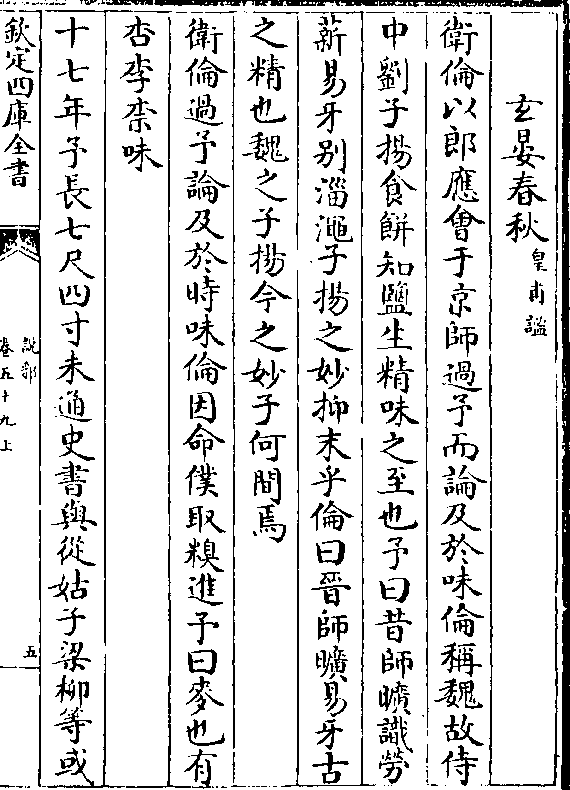 玄晏春秋 皇甫謐
衛倫以郎應會于京師過予而論及於味倫稱魏故侍
中劉子揚食餅知鹽生精味之至也予曰昔師曠識勞
薪易牙别淄澠子揚之妙抑末乎倫曰晉師曠易牙古
之精也魏之子揚今之妙子何間焉
衛倫過予論及於時味倫因命僕取糗進予曰麥也有
杏李柰味
十七年予長七尺四寸未通史書與從姑子梁柳等或
欽定四庫全書
說郛
卷五十九上
五